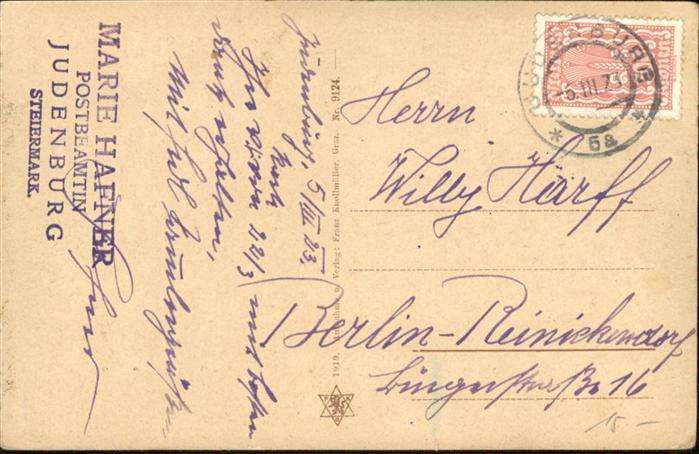 MARIE HAFNER
POSTBEAMTIN
JUDENBURG
STEIERMARK.
Judenburg, 5/III 23.
Ihre Karte
vom 22/3 mit bestem
Dank erhalten,
Mit
Hafner
1919. Verlag: Franz Knollmüller, Graz. Nr. 9124.
JUDENBURG
-5.III.23
* 5a *
Herrn
Willy Harff
Berlin-Reinickendorf
Bürgerstraße 16
15 -